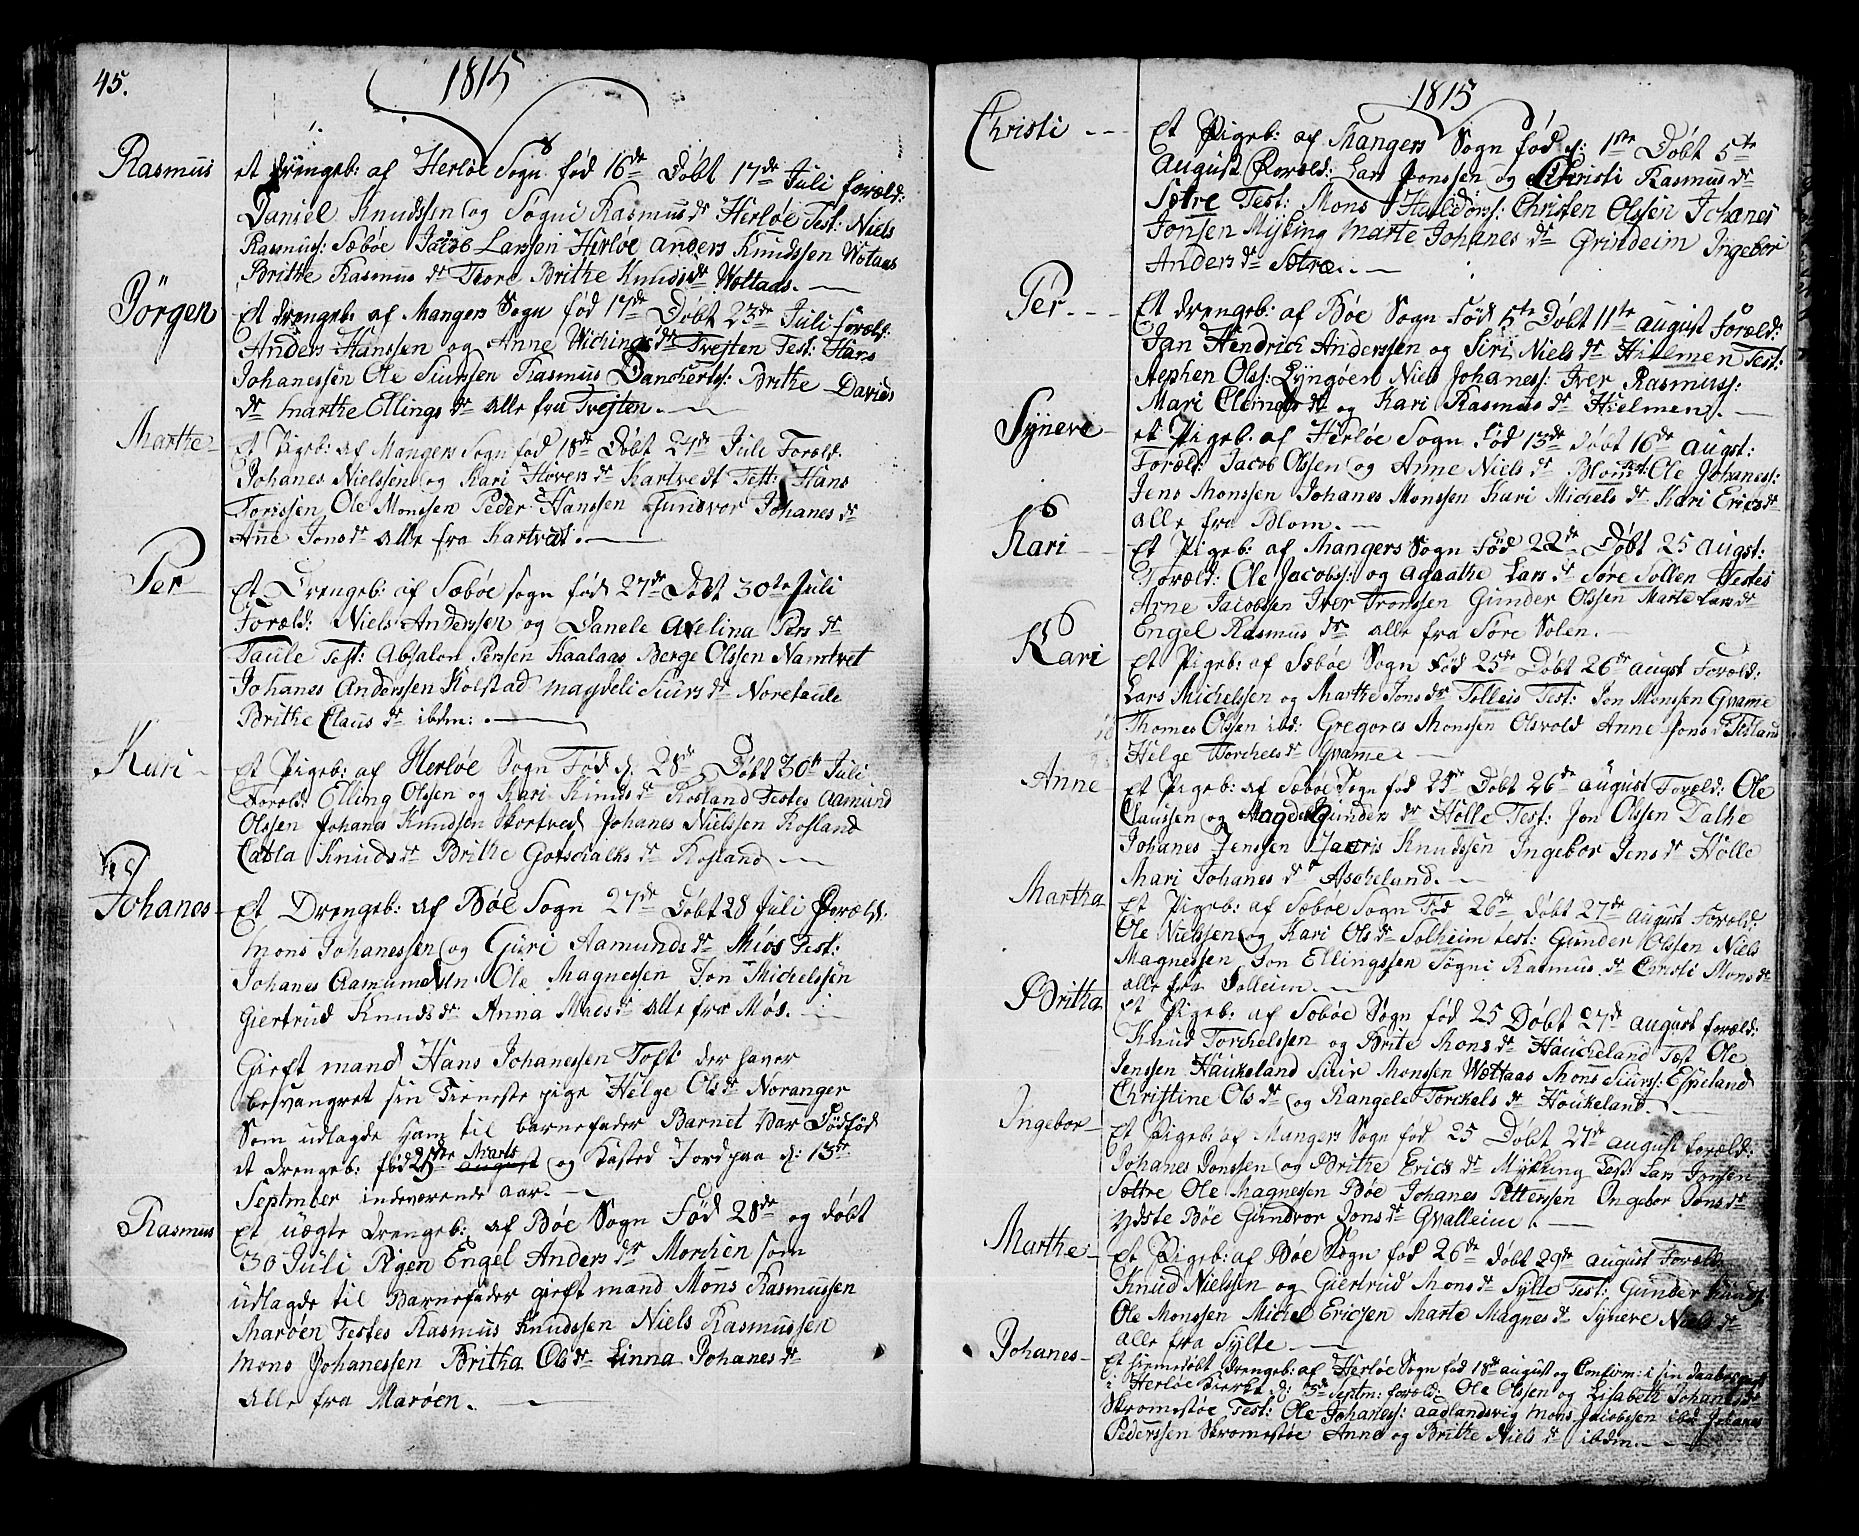 45.
1815
Rasmus
et drengeb: af Herløe Sogn fød 16de Døbt 17de Juli foræld:
Daniel Knudssen og Søgni Rasmusdr Herløe Test: Niels
Rasmuss: Sæbøe Jacob Larssen Herløe Anders Knudssen Wotaas
Brithe Rasmusdr Brithe Knudsdr Wottaas. —
Jörgen
Et drengeb: af Mangers Sogn fød 17de Døbt 23de Juli foræld:
Anders Hanssen og Anne Wichingsdr Tvejten Test: Hans
Johanessen Ole Siurssen Rasmus Danchertss: Brithe Davids
dr Marthe Ellingsdr alle fra Tvejten. —
Marthe
Et Pigeb: af Mangers Sogn fød 18de Døbt 24de Juli Foræld:
Johanes Nielssen og Kari Hoversdr Kartvedt Test: Hans
Torissen Ole Monssen Peder Hanssen Gundvor Johanesdr
Ane Jonsdr alle fra Kartvedt. —
Per
Et Drengeb: af Sæbøe sogn fød 27de Døbt 30te Juli
Foræld: Niels Anderssen og Danele Axelina Persdr
Taule Test: Absalon Perssen Kaalaas Berge Olssen Namtvet
Johanes Anderssen Kolstad Magdeli Siursdr Noretaule
Brithe Clausdr ibdm: —
Kari
Et Pigeb: af Herløe Sogn Fød d: 28de Døbt 30te Juli
Foræld: Elling Olssen og Kari Knudsdr Rosland Testes Aamund
Olssen Johanes Knudsen Skortved Johanes Nielssen Rosland
Catla Knudsdr Brithe Gotschalksdr Rosland —
Johanes
Et Drengeb: af Bøe Sogn 27de Døbt 28 Juli Foræld:
Mons Johanessen og Guri Aamundsdr Miøs Test:
Johanes Aamundssn Ole Magnessen Jon Michelssen
Giertrud Knudsdr Anna Madsdr alle fra Møs. —
Gieft mand Hans Johanessen Toft: der haver
besvangret sin Tieneste pige Helge Olsdr Noranger
Som udlagde ham til barnefader Barnet Var Dødfød
et drengeb: fød 25de Marts august og Kasted Jord paa d: 13de
September indeværende aar. —
Rasmus
Et uægte Drengeb: af Bøe Sogn Fød 28de og døbt
30 Juli Pigen Engel Andersdr Morchen som
udlagde til Barnefader gieft mand Mons Rasmussen
Marøen Testes Rasmus Knudssen Niels Rasmussen
Mons Johanessen Britha Olsdr Linna Johanesdr
Alle fra Marøen. —
1815
Christi
Et Pigeb: af Mangers Sogn fød d: 1ste Døbt 5te
August Foræld: Lars Jonssen og Christi Rasmusdr
Sætre Test: Mons Haldorss: Christen Olssen Johanes
Jonsen Mijking Marte Johanesdr Grindeim Ingebor
Andersdr Sætre. —
Per
Et drengeb: af Bøe Sogn Fød 5te Døbt 11te august Foræld:
Jan Hendrich Anderssen og Siri Nielsdr Hielmen Test:
Stephen Olss: Lyngøen Niels Johaness: Iver Rasmuss:
Mari Clemetsdr og Kari Rasmusdr Hielmen. —
Synere
et Pigeb: af Herløe Sogn Fød 13de døbt 16de Augst:
Foræld: Jacob Olssen og Anne Nielsdr Blom Test: Ole Johaness:
Jens Monssen Johanes Monssen Kari Michelsdr Kari Ericsdr
alle fra Blom. —
Kari
Et Pigeb: af Mangers Sogn Fød 22de Døbt 25 Augst:
Foræld: Ole Jacobss: og Agaathe Larsdr Søre Sollen Testes
Arne Jacobssen Iver Tronssen Gunder Olssen Marte Larsdr
Engel Rasmusdr alle fra Søre Solen. —
Kari
Et Pigeb: af Sæbøe Sogn Fød 25de Døbt 26de Augst Foræld:
Lars Michelssen og Marthe Jonsdr Tolleis Test: Jon Monssen Qvame
Thomes Olssen ibd: Gregores Monssen Olsvold Anne Jonsdr Tosland
Helge Torchelsdr Qvame —
Anne
Et Pigeb: af Sæbøe Sogn fød 25de Døbt 26de august Foræld: Ole
Claussen og Magdeli Gundersdr Hølle Test: Jon Olssen Dalhe
Johanes Jenssen Joacris Knudssen Ingebor Jensdr Hølle
Mari Johanesdr Ascheland. —
Martha
Et Pigeb: af Sæbøe Sogn Fød 26de døbt 27de august Foræld:
Ole Nielssen og Kari Olsdr Solheim test: Gunder Olssen Niels
Magnessen Jon Ellingssen Søgni Rasmusdr Christi Monsdr
alle fra Solleim. —
Britha
Et Pigeb: af Sæbøe Sogn fød 25 Døbt 27de august foræld:
Knud Torchelssen og Brite Monsdr Hauckeland Test Ole
Jenssen Haukeland Siur Monssen Wættaas Mons Siurss: Espeland
Christine Olsdr og Rangele Torckelsdr Houkeland. —
Ingebor
Et Pigeb: af Mangers Sogn fød 25 Døbt 27de august foræld:
Johanes Jonssen og Brithe Ericsdr Mykking Test: Lars Jonsen
Sættre Ole Magnessen Bøe Johanes Petterssen Ingebor Jonsdr
Ydste Bøe Gundvor Jonsdr Qvalleim. —
Marthe
Et Pigeb: af Bøe Sogn fød 26de døbt 29de august Foræld:
Knud Nielssen og Giertrud Monsdr Sylte Test: Gunder Knuds:
Ole Monssen Michel Ericsen Marte Magnesdr Synere Nielsdr
alle fra Sylte —
Johanes
Et hiemedøbt drengeb: af Herløe Sogn fød 18de august og Confirm: i sin daab
i Herløe Kirke d: 3de Septm: foræld: Ole Olssen og Lisabeth Johanesdr
Skromestøe Test: Ole Johaness: Aadlandsvig Mons Jacobssen ibd Johanes
Pederssen Skromestøe Anne og Brithe Nielsdr ibdm. —